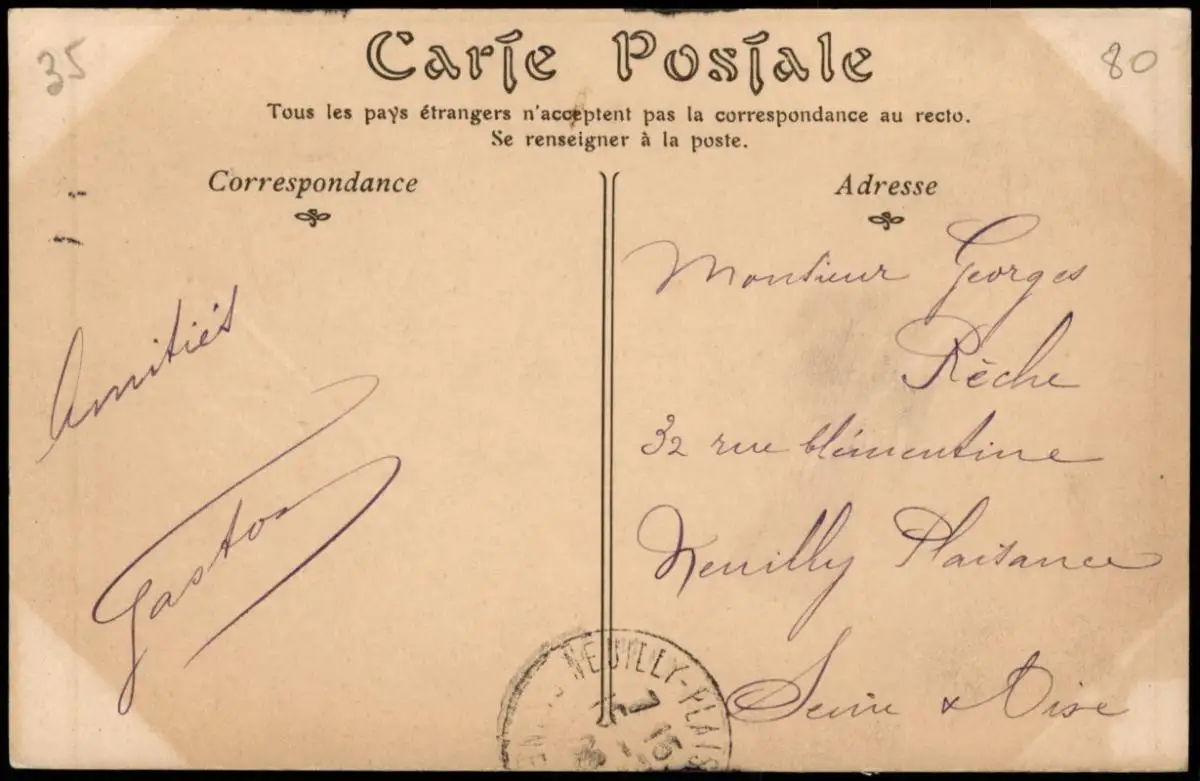 35
80
Carte Postale
Tous les pays étrangers n'acceptent pas la correspondance au recto.
Se renseigner à la poste.
Correspondance
Amitiés
Gaston
Adresse
Monsieur Georges
Rêche
32 rue Clémentine
Neuilly Plaisance
Seine & Oise
NEUILLY-PLAIS
7
15